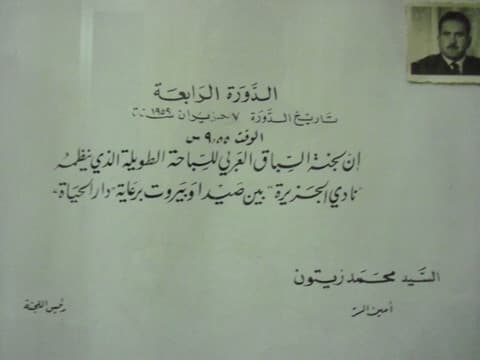 الدّورَة الرَابعَة
تاريخ الدَّورَة ٧ حزيران سنة ١٩٥٩
الوقت ٩,٥٥ س
إن لجنة السِّباق العَربي للسّباحة الطويلة الذي ينظمه
"نادي الجزيرة" بين صَيدا وبيروت برعاية "دار الحياة"
السَّيد محمد زيتون
أمين السر
رئيس اللجنة